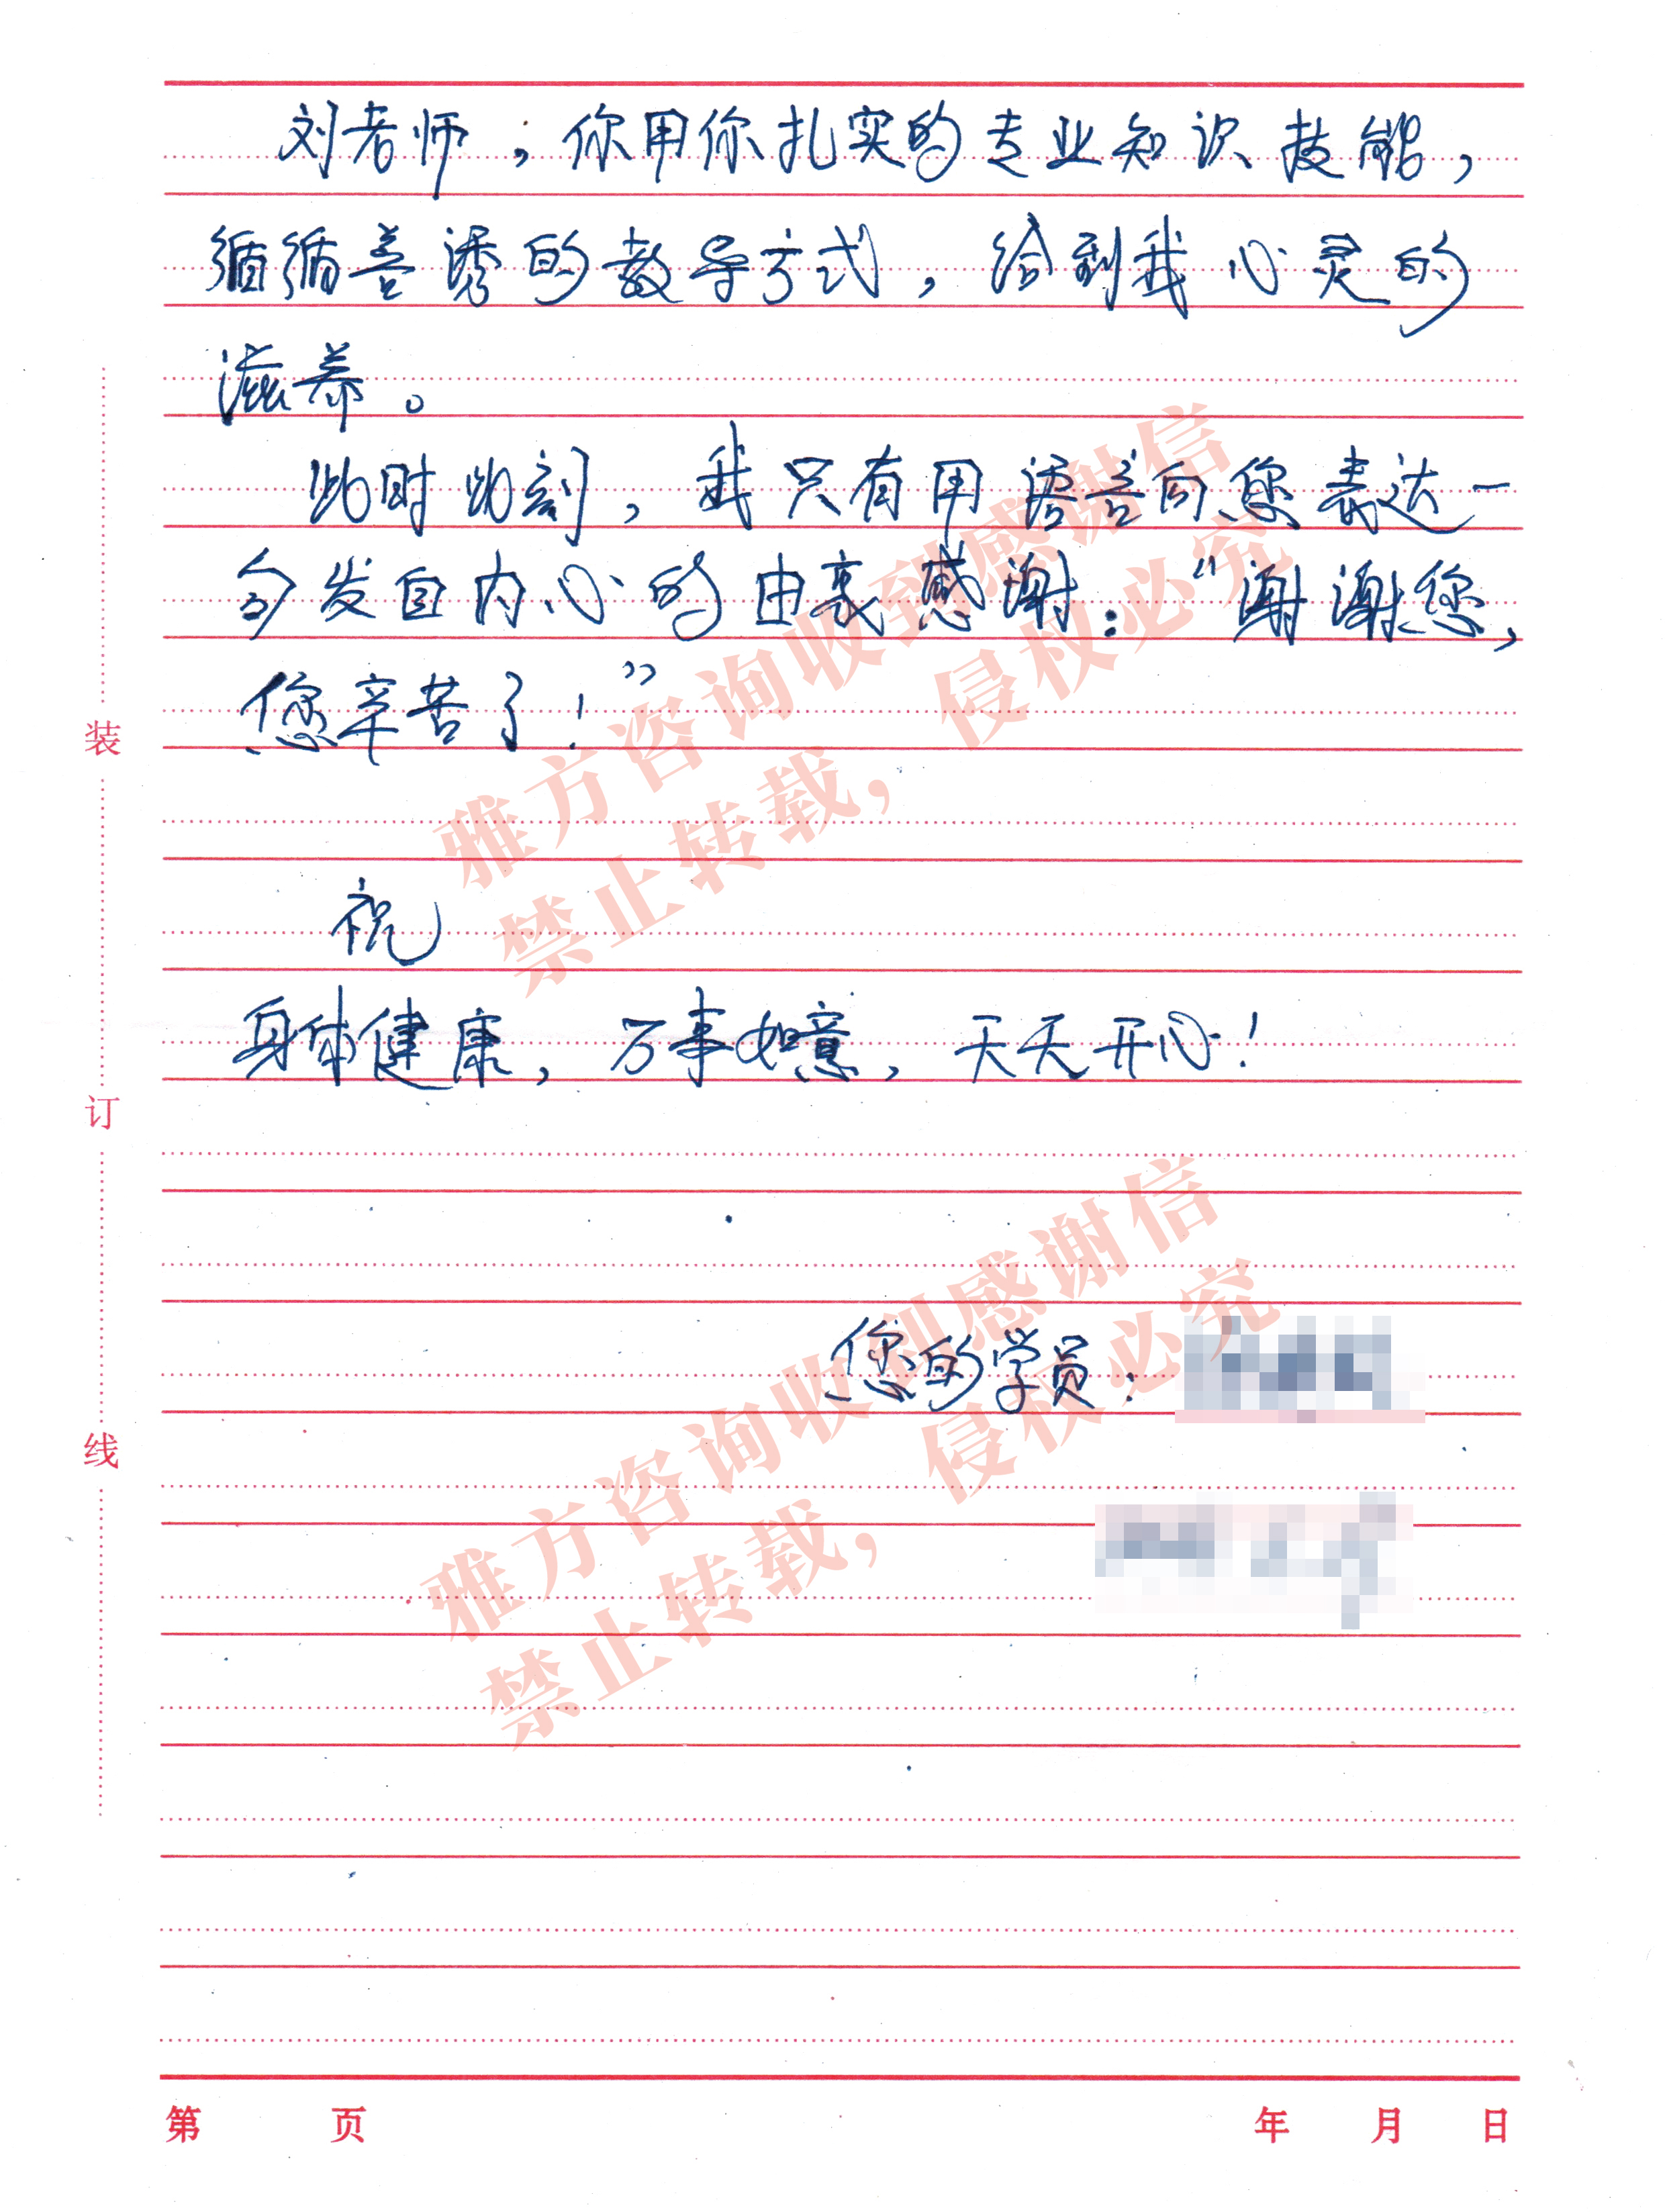 刘老师,你用你扎实的专业知识技能,
循循善诱的教导方式,给到我心灵的
滋养。
此时此刻,我只有用语言向您表达一
句发自内心的由衷感谢:“谢谢您,
您辛苦了!”
祝
身体健康,万事如意,天天开心!
您的学员:
装
订
线
雅方咨询收到感谢信
禁止转载,侵权必究
雅方咨询收到感谢信
禁止转载,侵权必究
第 页 年 月 日